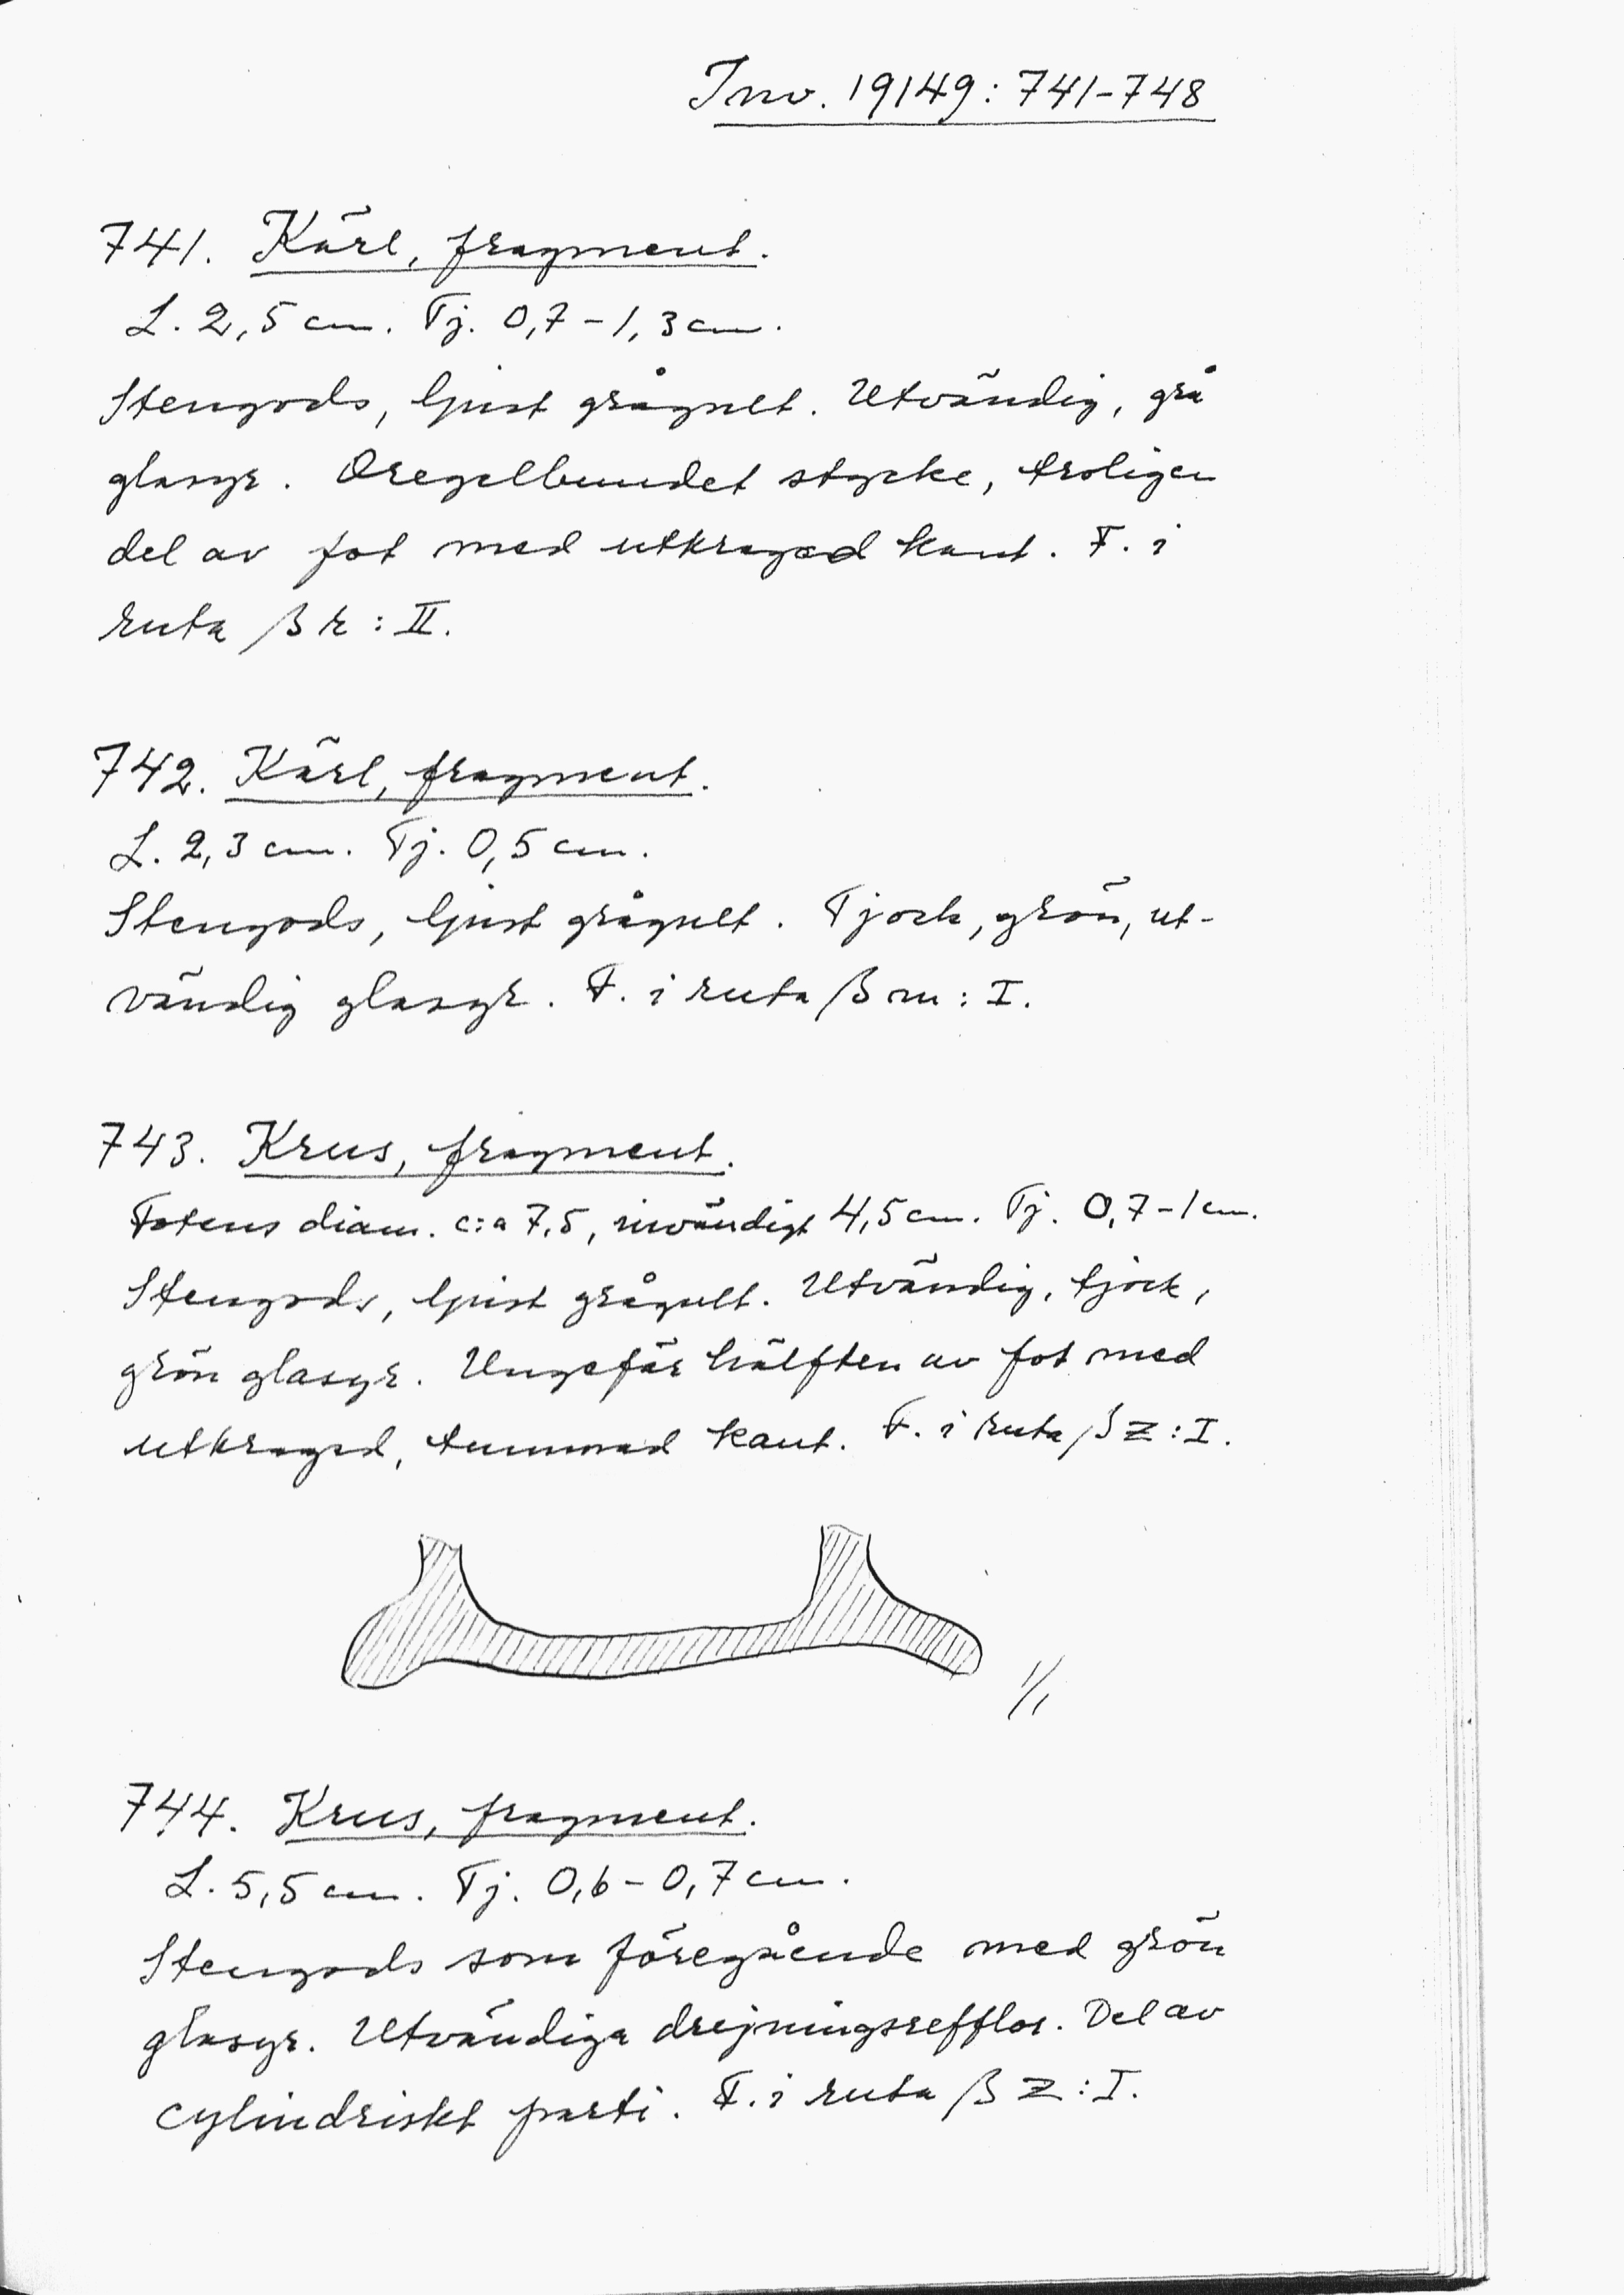 Inv. 19149:741-748
741. Kärl, fragment.
L. 2,5 cm. Tj. 0,7-1,3 cm.
Stengods, ljust grågult. Utvändig, grå
glasyr. Oregelbundet stycke, troligen
del av fot med utkragad kant. F. i
ruta β r : II.
742. Kärl, fragment.
L. 2,3 cm. Tj. 0,5 cm.
Stengods, ljust grågult. Tjock, grön, ut-
vändig glasyr. F. i ruta β m : I.
743. Krus, fragment.
Fotens diam. c:a 7,5, invändigt 4,5 cm. Tj. 0,7-1 cm.
Stengods, ljust grågult. Utvändig, tjock,
grön glasyr. Ungefär hälften av fot med
utkragad, tummad kant. F. i ruta β z : I.
1/1
744. Krus, fragment.
L. 5,5 cm. Tj. 0,6-0,7 cm.
Stengods som föregående med grön
glasyr. Utvändiga drejningsrefflor. Del av
cylindriskt parti. F. i ruta β z : I.